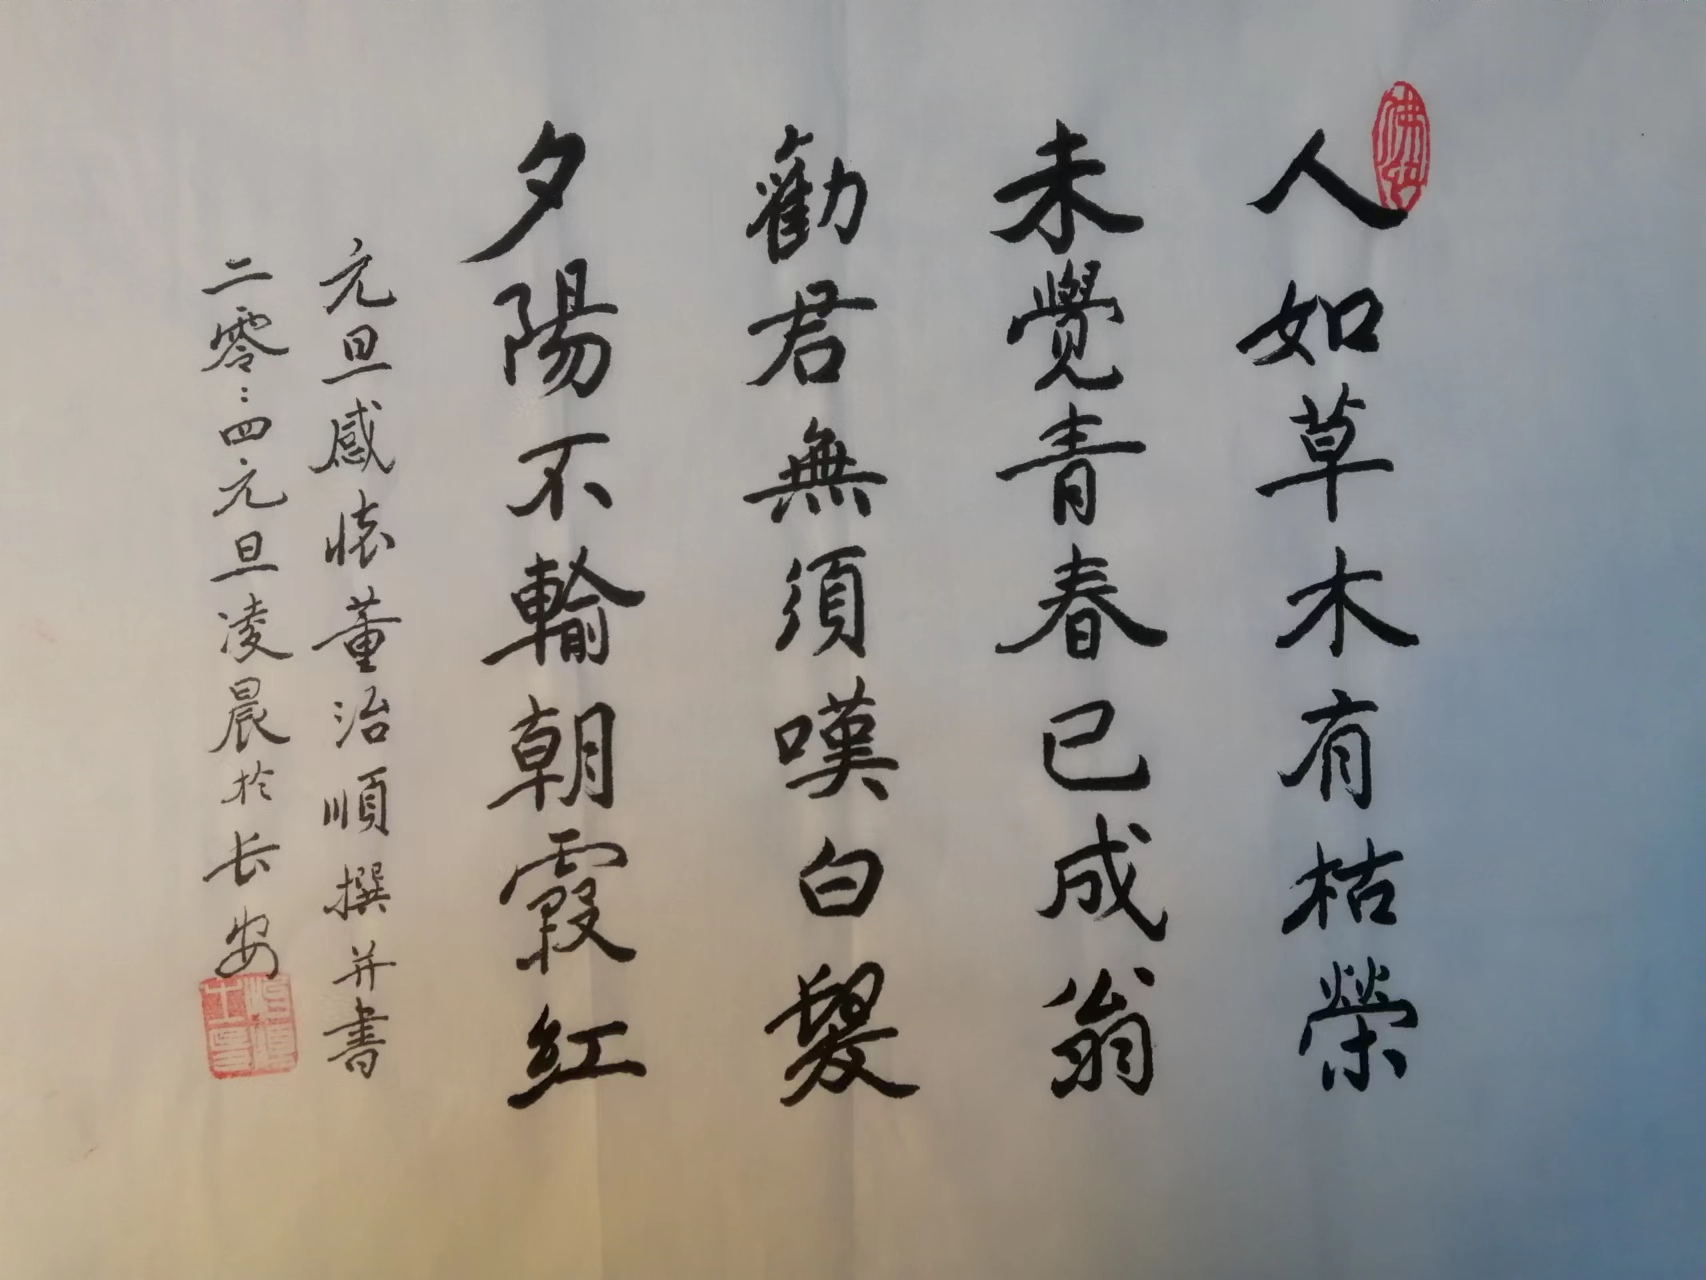 人如草木有枯榮
未覺青春已成翁
勸君無須嘆白髮
夕陽不輸朝霞红
元旦感懷董治順撰并書
二零:四元旦凌晨於长安